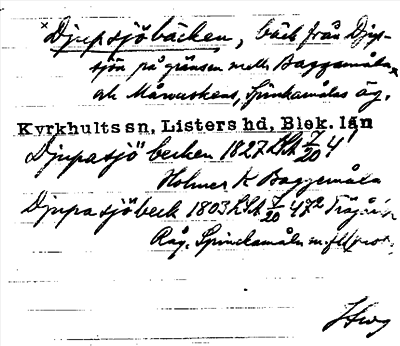 × Djupsjöbäcken, bäck från Djup-
sjön på gränsen mell. Baggamåla
och Månasken, Spinkamåla äg.
Kyrkhults sn, Listers hd, Blek. län
Djupasjö becken 1827 LSA 7/20 4!
Holmar K Baggemåla
Djupasjöbeck 1803 LSA 7/20 47²
Råg. Spinckamåla m. fl.